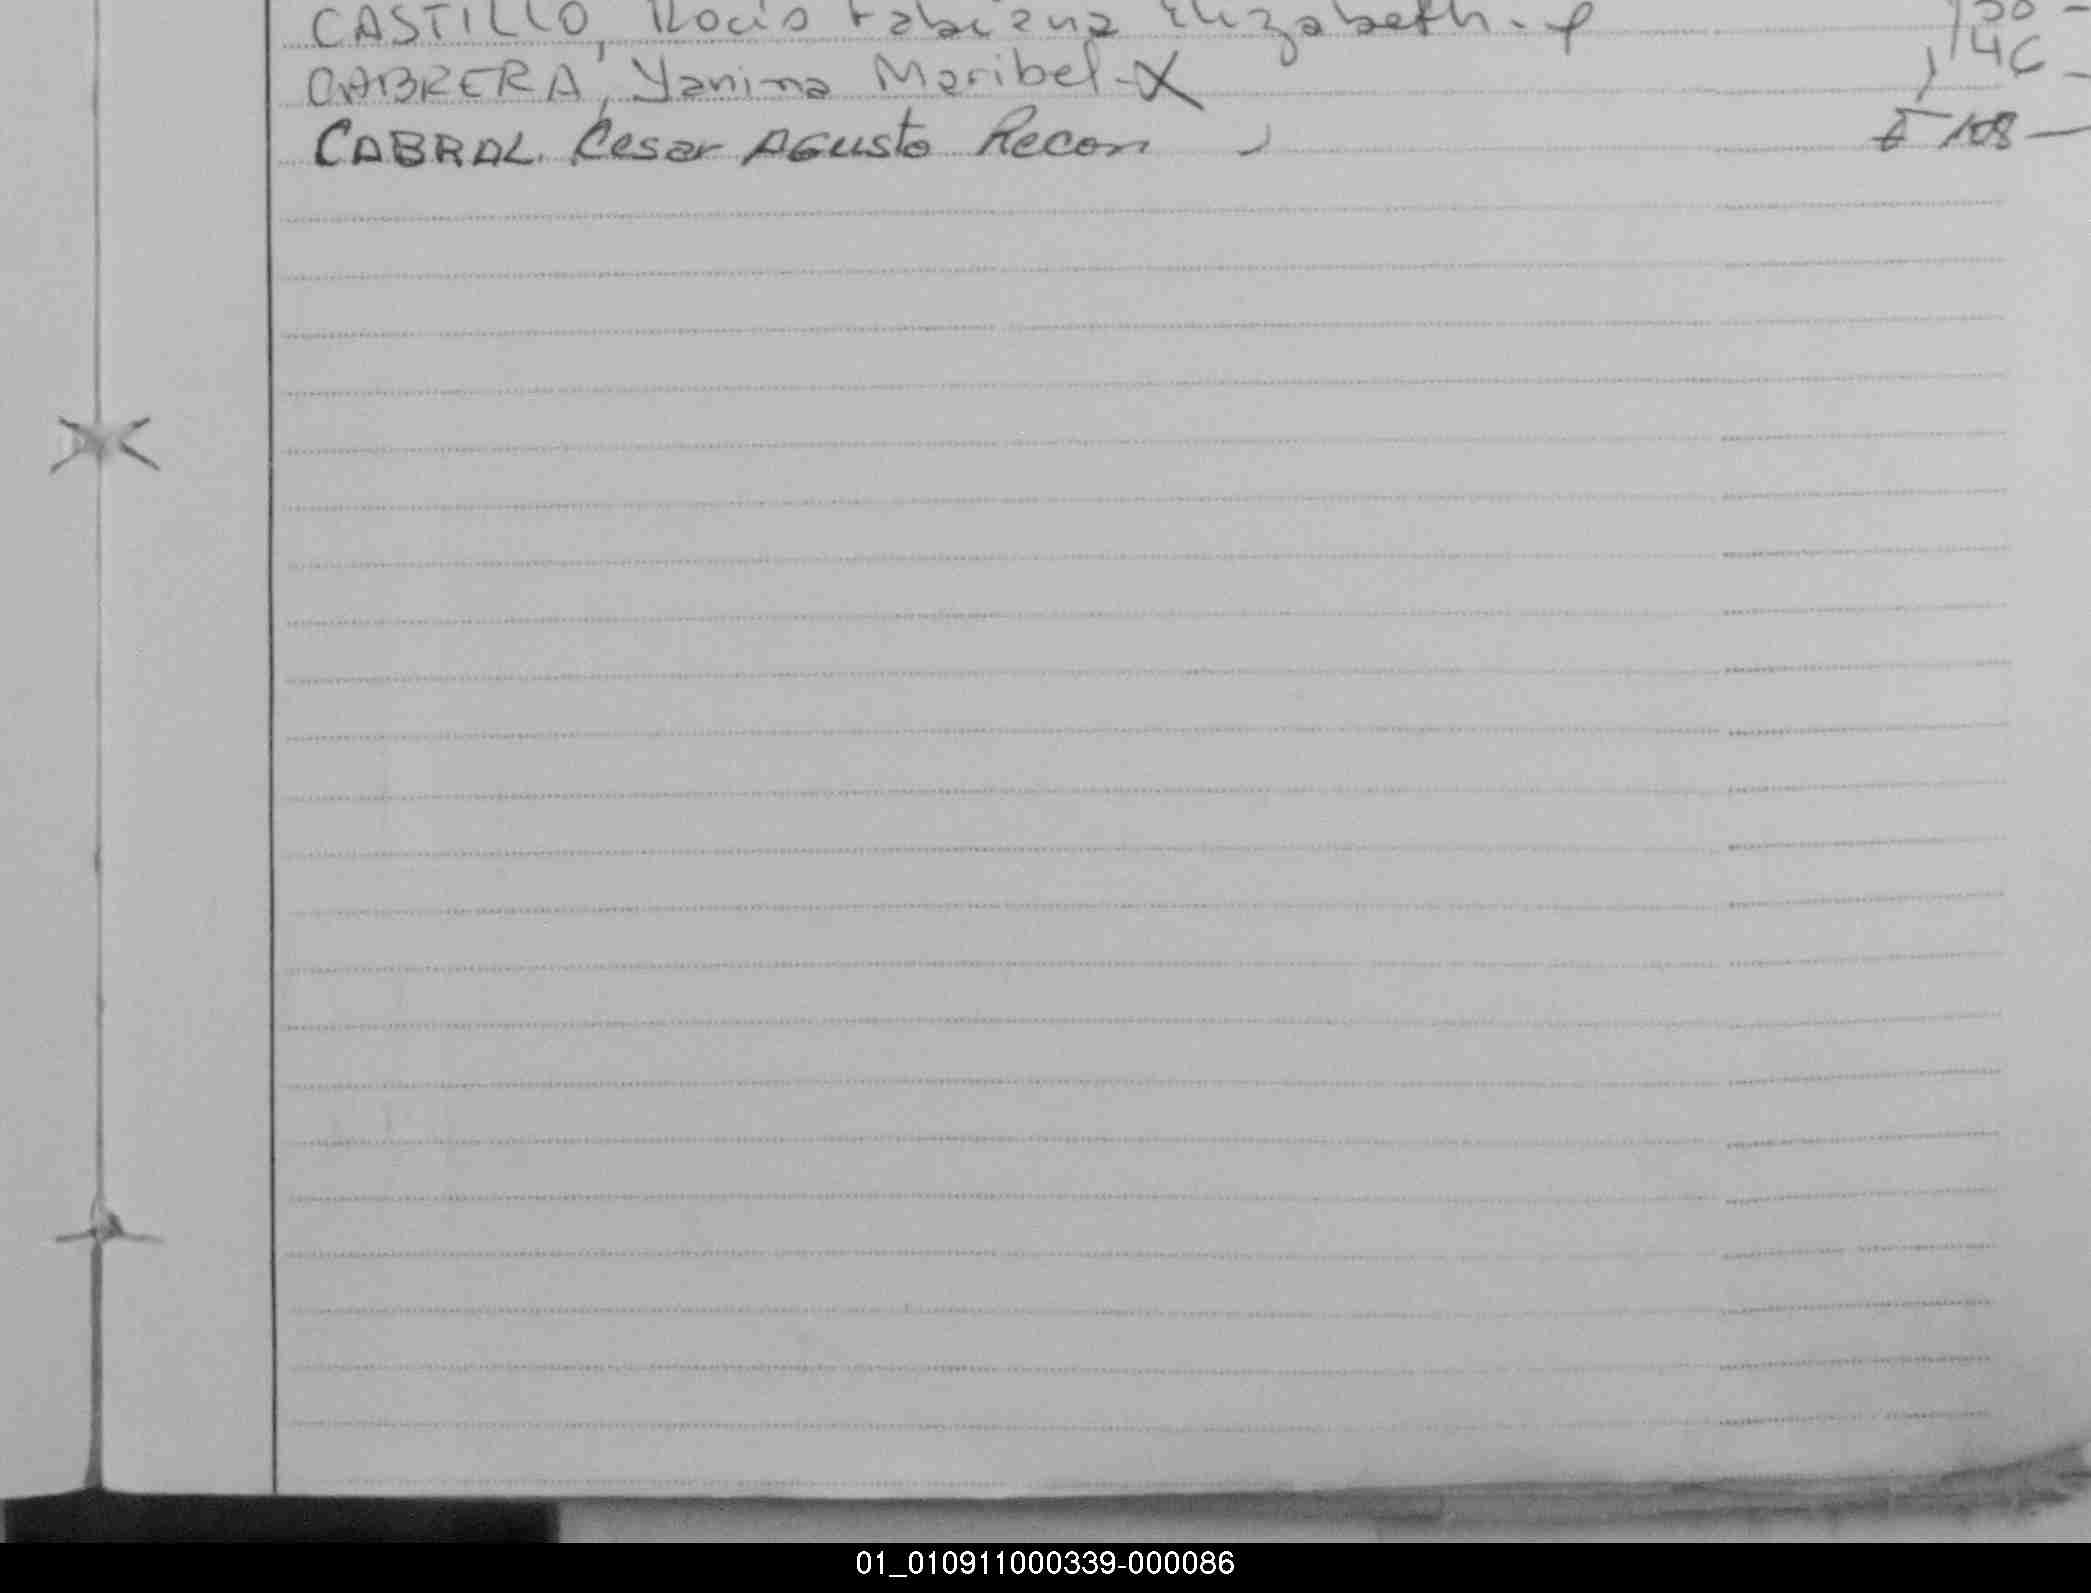 CASTILLO, Rocio Fabiana Elizabeth.
CABRERA, Yanina Maribel - X 146 -
CABRAL Cesar AGusto Recon I 108 -
01_010911000339-000086